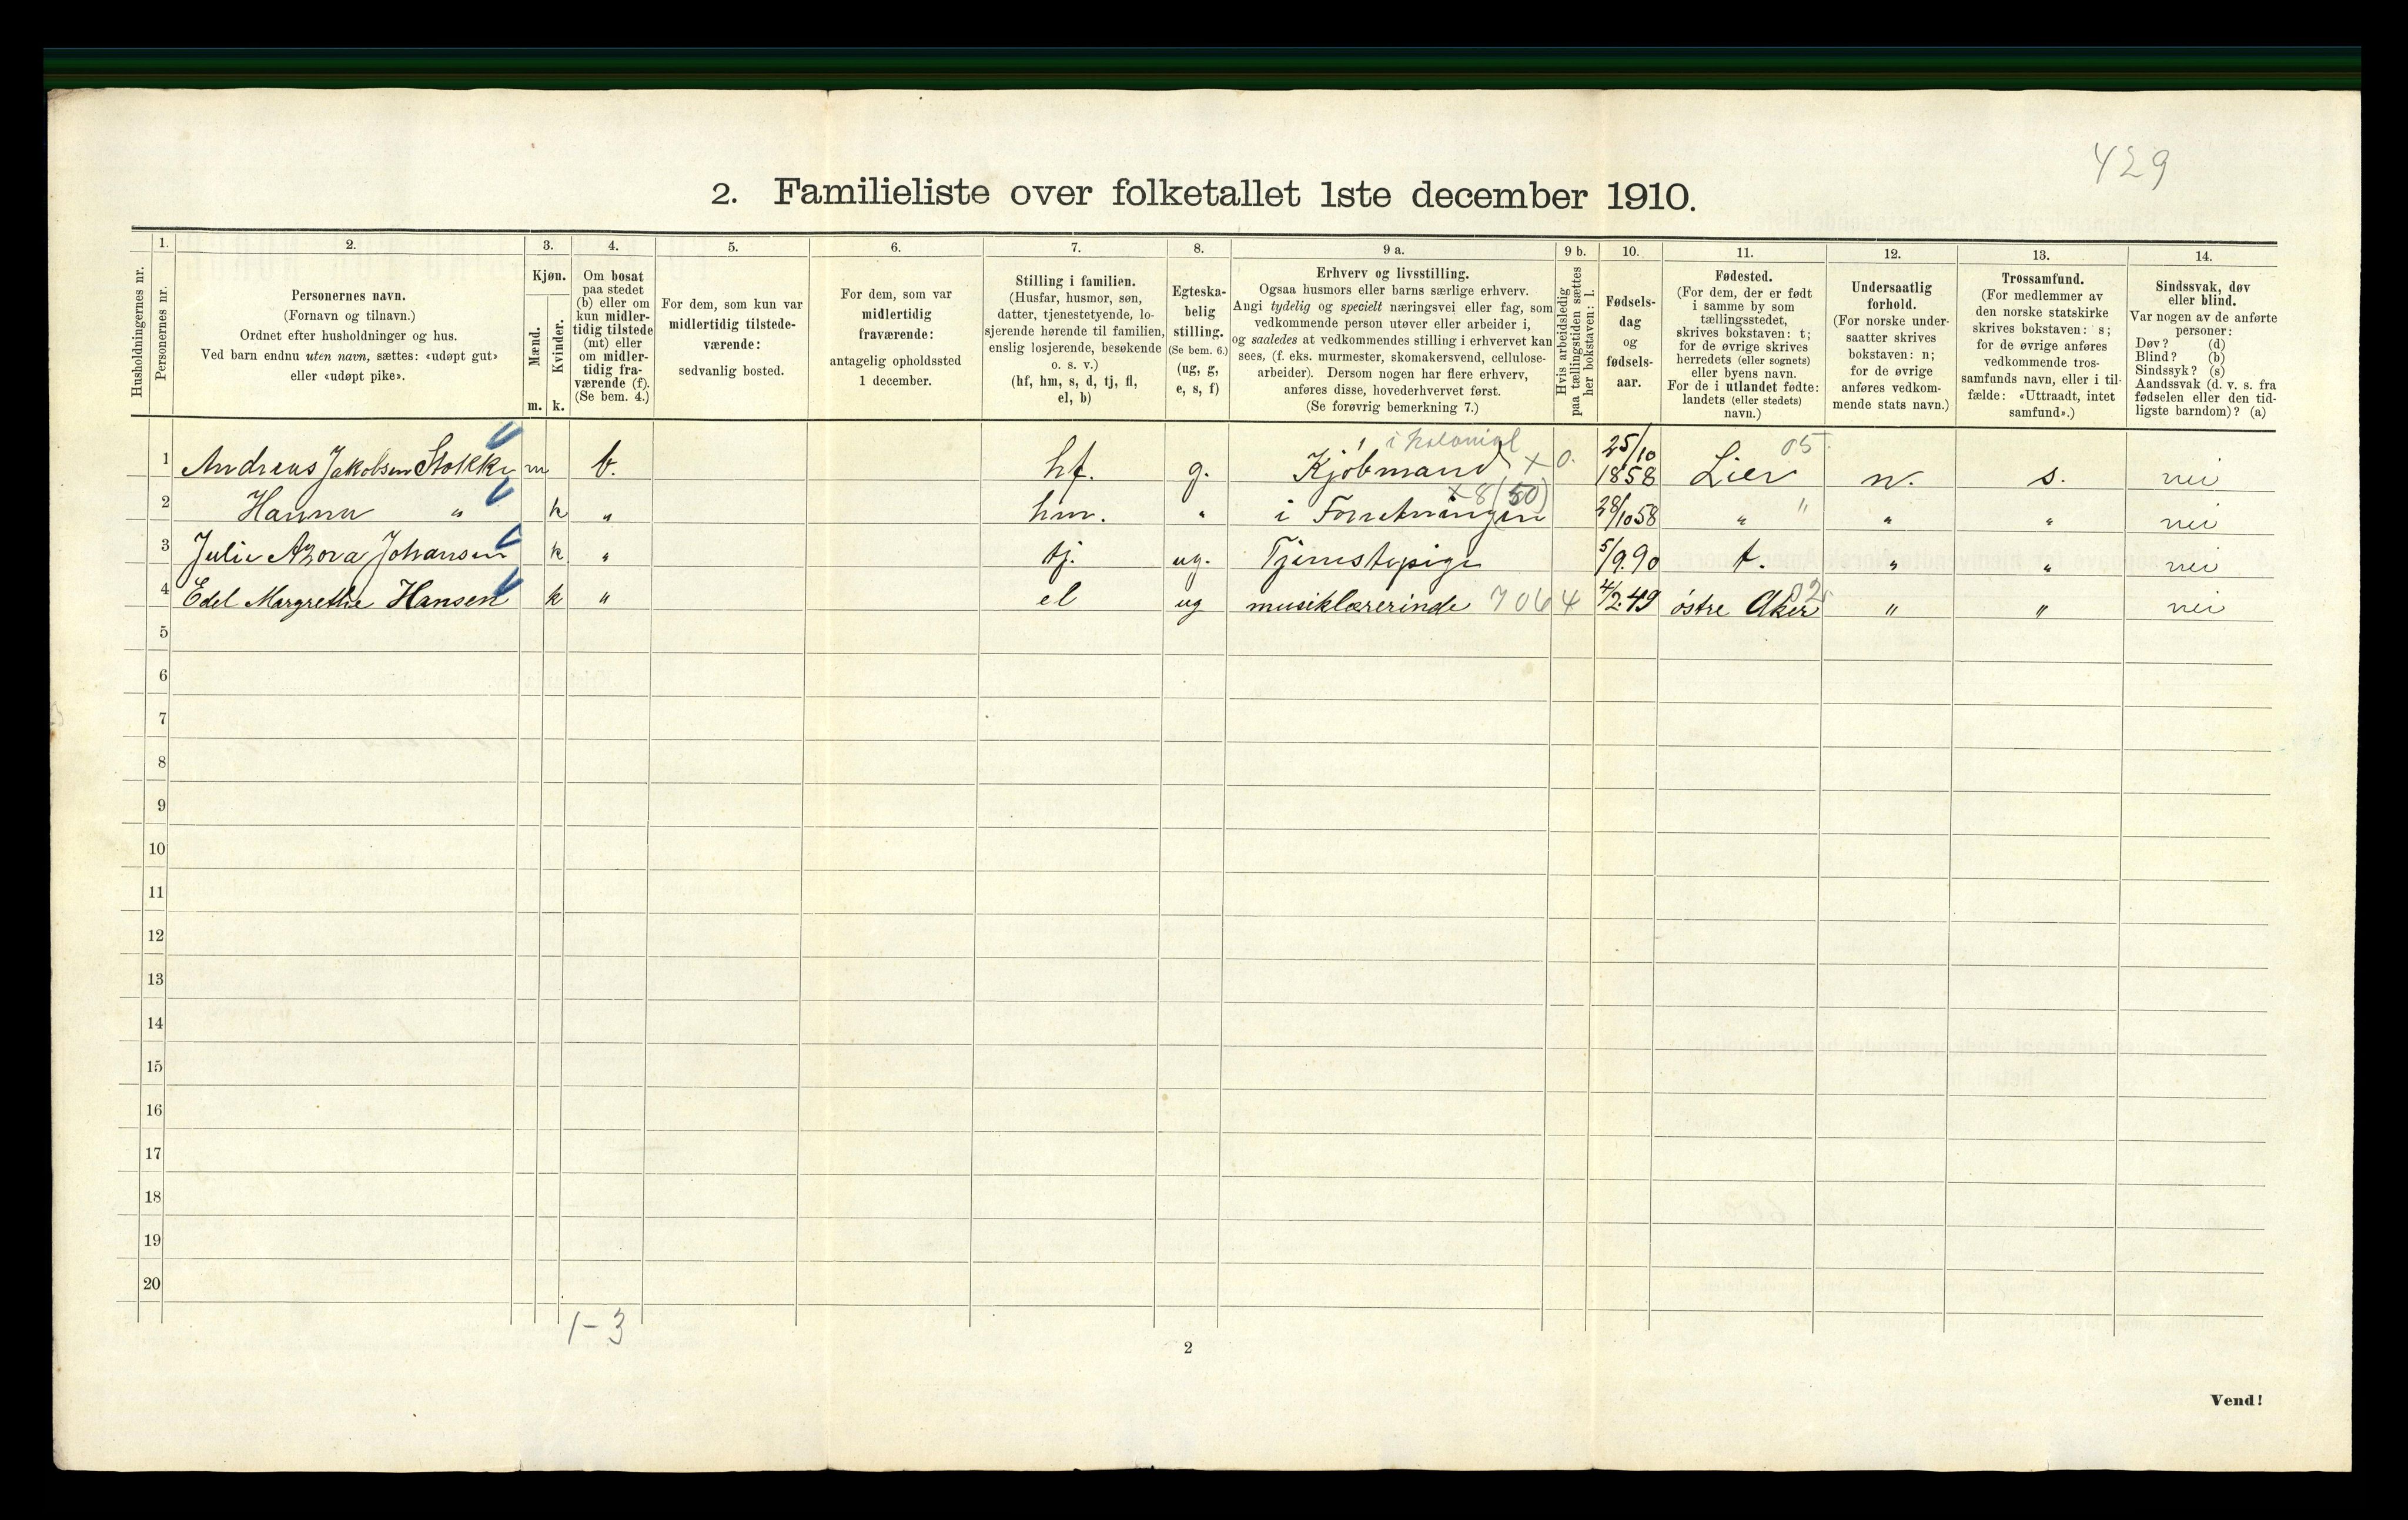 429
2. Familieliste over folketallet 1ste december 1910.
Husholdningernes nr.
1.
Personernes nr.
2.
Personernes navn.
(Fornavn og tilnavn.)
Ordnet efter husholdninger og hus.
Ved barn endnu uten navn, sættes: «udøpt gut»
eller «udøpt pike».
3.
Kjøn.
Mænd.
Kvinder.
m. k.
4.
Om bosat
paa stedet
(b) eller om
kun midler-
tidig tilstede
(mt) eller
om midler-
tidig fra-
værende (f).
(Se bem. 4.)
5.
For dem, som kun var
midlertidig tilstede-
værende:
sedvanlig bosted.
6.
For dem, som var
midlertidig
fraværende:
antagelig opholdssted
1 december.
7.
Stilling i familien.
(Husfar, husmor, søn,
datter, tjenestetyende, lo-
sjerende hørende til familien,
enslig losjerende, besøkende
o. s. v.)
(hf, hm, s, d, tj, fl,
el, b)
8.
Egteska-
belig
stilling.
(Se bem. 6.)
(ug, g,
e, s, f)
9 a.
Erhverv og livsstilling.
Ogsaa husmors eller barns særlige erhverv.
Angi tydelig og specielt næringsvei eller fag, som
vedkommende person utøver eller arbeider i,
og saaledes at vedkommendes stilling i erhvervet kan
sees, (f. eks. murmester, skomakersvend, cellulose-
arbeider). Dersom nogen har flere erhverv,
anføres disse, hovederhvervet først.
(Se forøvrig bemerkning 7.)
9 b.
Hvis arbeidsledig
paa tællingstiden sættes
her bokstaven: l.
10.
Fødsels-
dag
og
fødsels-
aar.
11.
Fødested.
(For dem, der er født
i samme by som
tællingsstedet,
skrives bokstaven: t;
for de øvrige skrives
herredets (eller sognets)
eller byens navn.
For de i utlandet fødte:
landets (eller stedets)
navn.)
12.
Undersaatlig
forhold.
(For norske under-
saatter skrives
bokstaven: n;
for de øvrige
anføres vedkom-
mende stats navn.)
13.
Trossamfund.
(For medlemmer av
den norske statskirke
skrives bokstaven: s;
for de øvrige anføres
vedkommende tros-
samfunds navn, eller i til-
fælde: «Uttraadt, intet
samfund».)
14.
Sindssvak, døv
eller blind.
Var nogen av de anførte
personer:
Døv? (d)
Blind? (b)
Sindssyk? (s)
Aandssvak (d. v. s. fra
fødselen eller den tid-
ligste barndom)? (a)
i kolonial 05.
1 Andreas Jakobsen Stokke m b. hf. g. Kjøbmand x 0. 25/10 1858 Lier n. s. nei
x 8 (50)
2 Hanna " k " hm. " i Forretningen 28/10 58 " " " " nei
3 Julie Azora Johansen k " tj. ug. Tjenstepige 5/9.90 t. " " nei
4 Edel Margrethe Hansen k " el ug musiklærerinde 7064 4/2.49 østre Aker 02. " " nei
5
6
7
8
9
10
11
12
13
14
15
16
17
18
19
20
1-3
2
Vend!